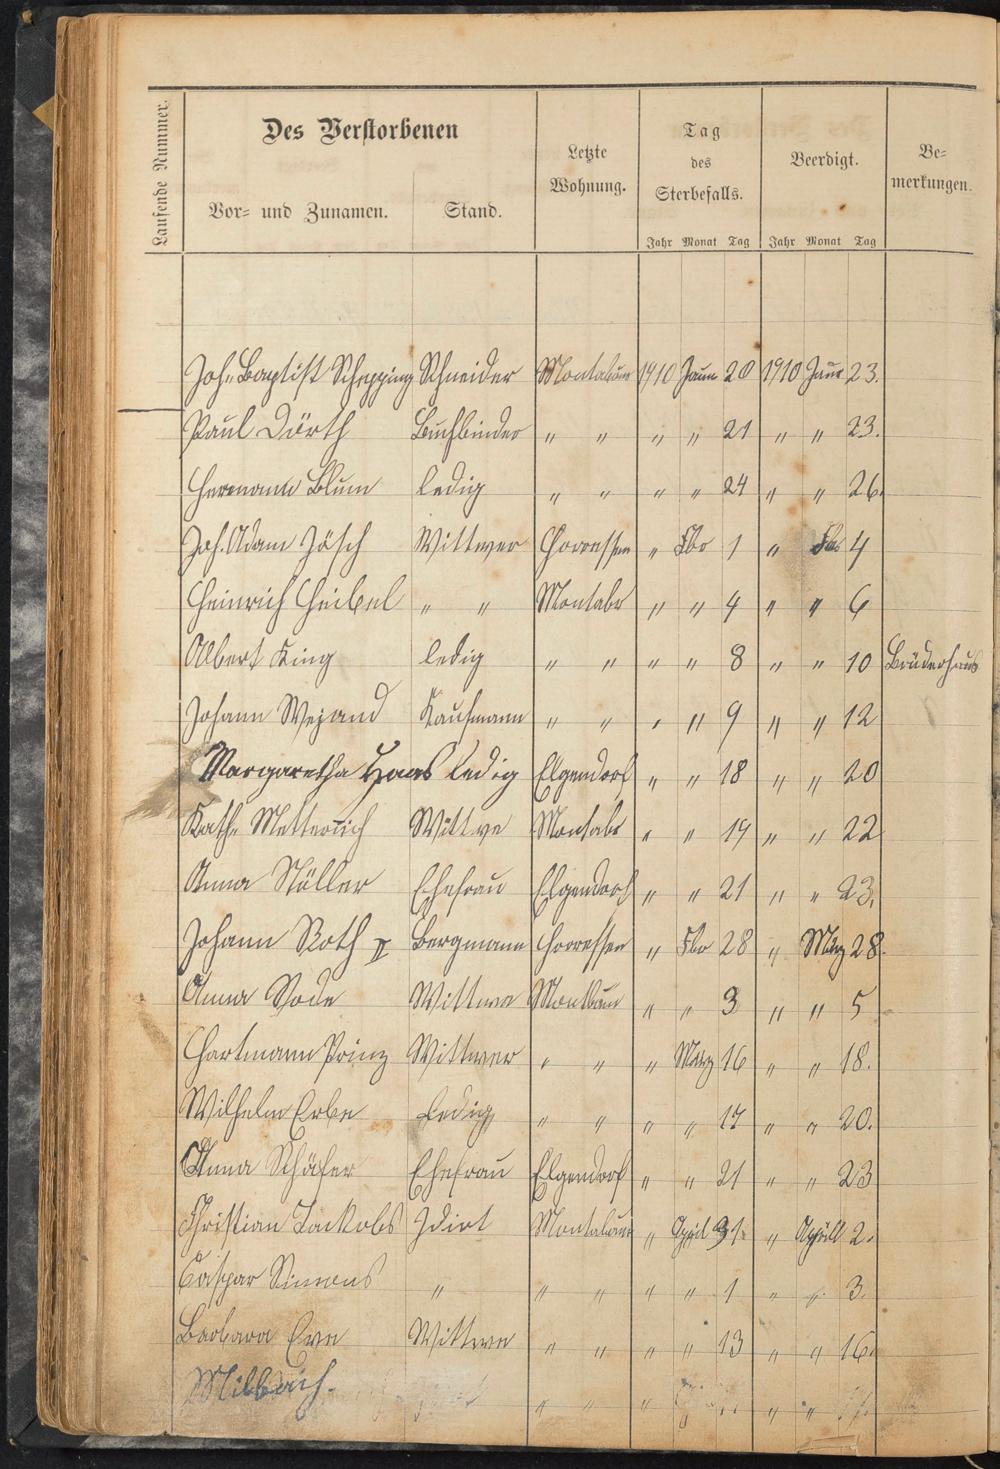 Laufende Nummer.
Des Verstorbenen
Vor- und Zunamen. Stand.
Letzte Wohnung.
Tag des Sterbefalls.
Jahr Monat Tag
Beerdigt.
Jahr Monat Tag
Be-
merkungen.
Joh. Baptist Schepping Schneider Montabaur 1910 Janu 20 1910 Janu 23.
Paul Dörth Buchbinder " " " " 21 " " 23.
Hermann Blum ledig " " " " 24 " " 26.
Joh. Adam Jösch Wittwer Horressen " Fbr 1 " Fbr 4
Heinrich Heibel " " Montabr " " 4 " " 6
Albert King ledig " " " " 8 " " 10 Brüderhaus
Johann Weyand Kaufmann " " " " 9 " " 12
Margaretha Haas ledig Elgendorf " " 18 " " 20
Kath. Metternich Wittwe Montabr " " 19 " " 22
Anna Möller Ehefrau Elgendorf " " 21 " " 23.
Johann Roth II Bergmann Horressen " Fbr 28 " März 28.
Anna Wittwe " " 3 " " 5
Hartmann Prinz Wittwer " " " März 16 " " 18.
Wilhelm Erbe Ledig " " " " 17 " " 20.
Anna Schäfer Ehefrau Elgendorf " " 21 " " 23
Christian Jackobs Idiot Montabaur " April 31. " Aprill 2.
Caspar Simons " " " " " 1 " " 3.
Barbara Eve Wittwe " " " " 13 " " 16.
Milbach. " " " " "